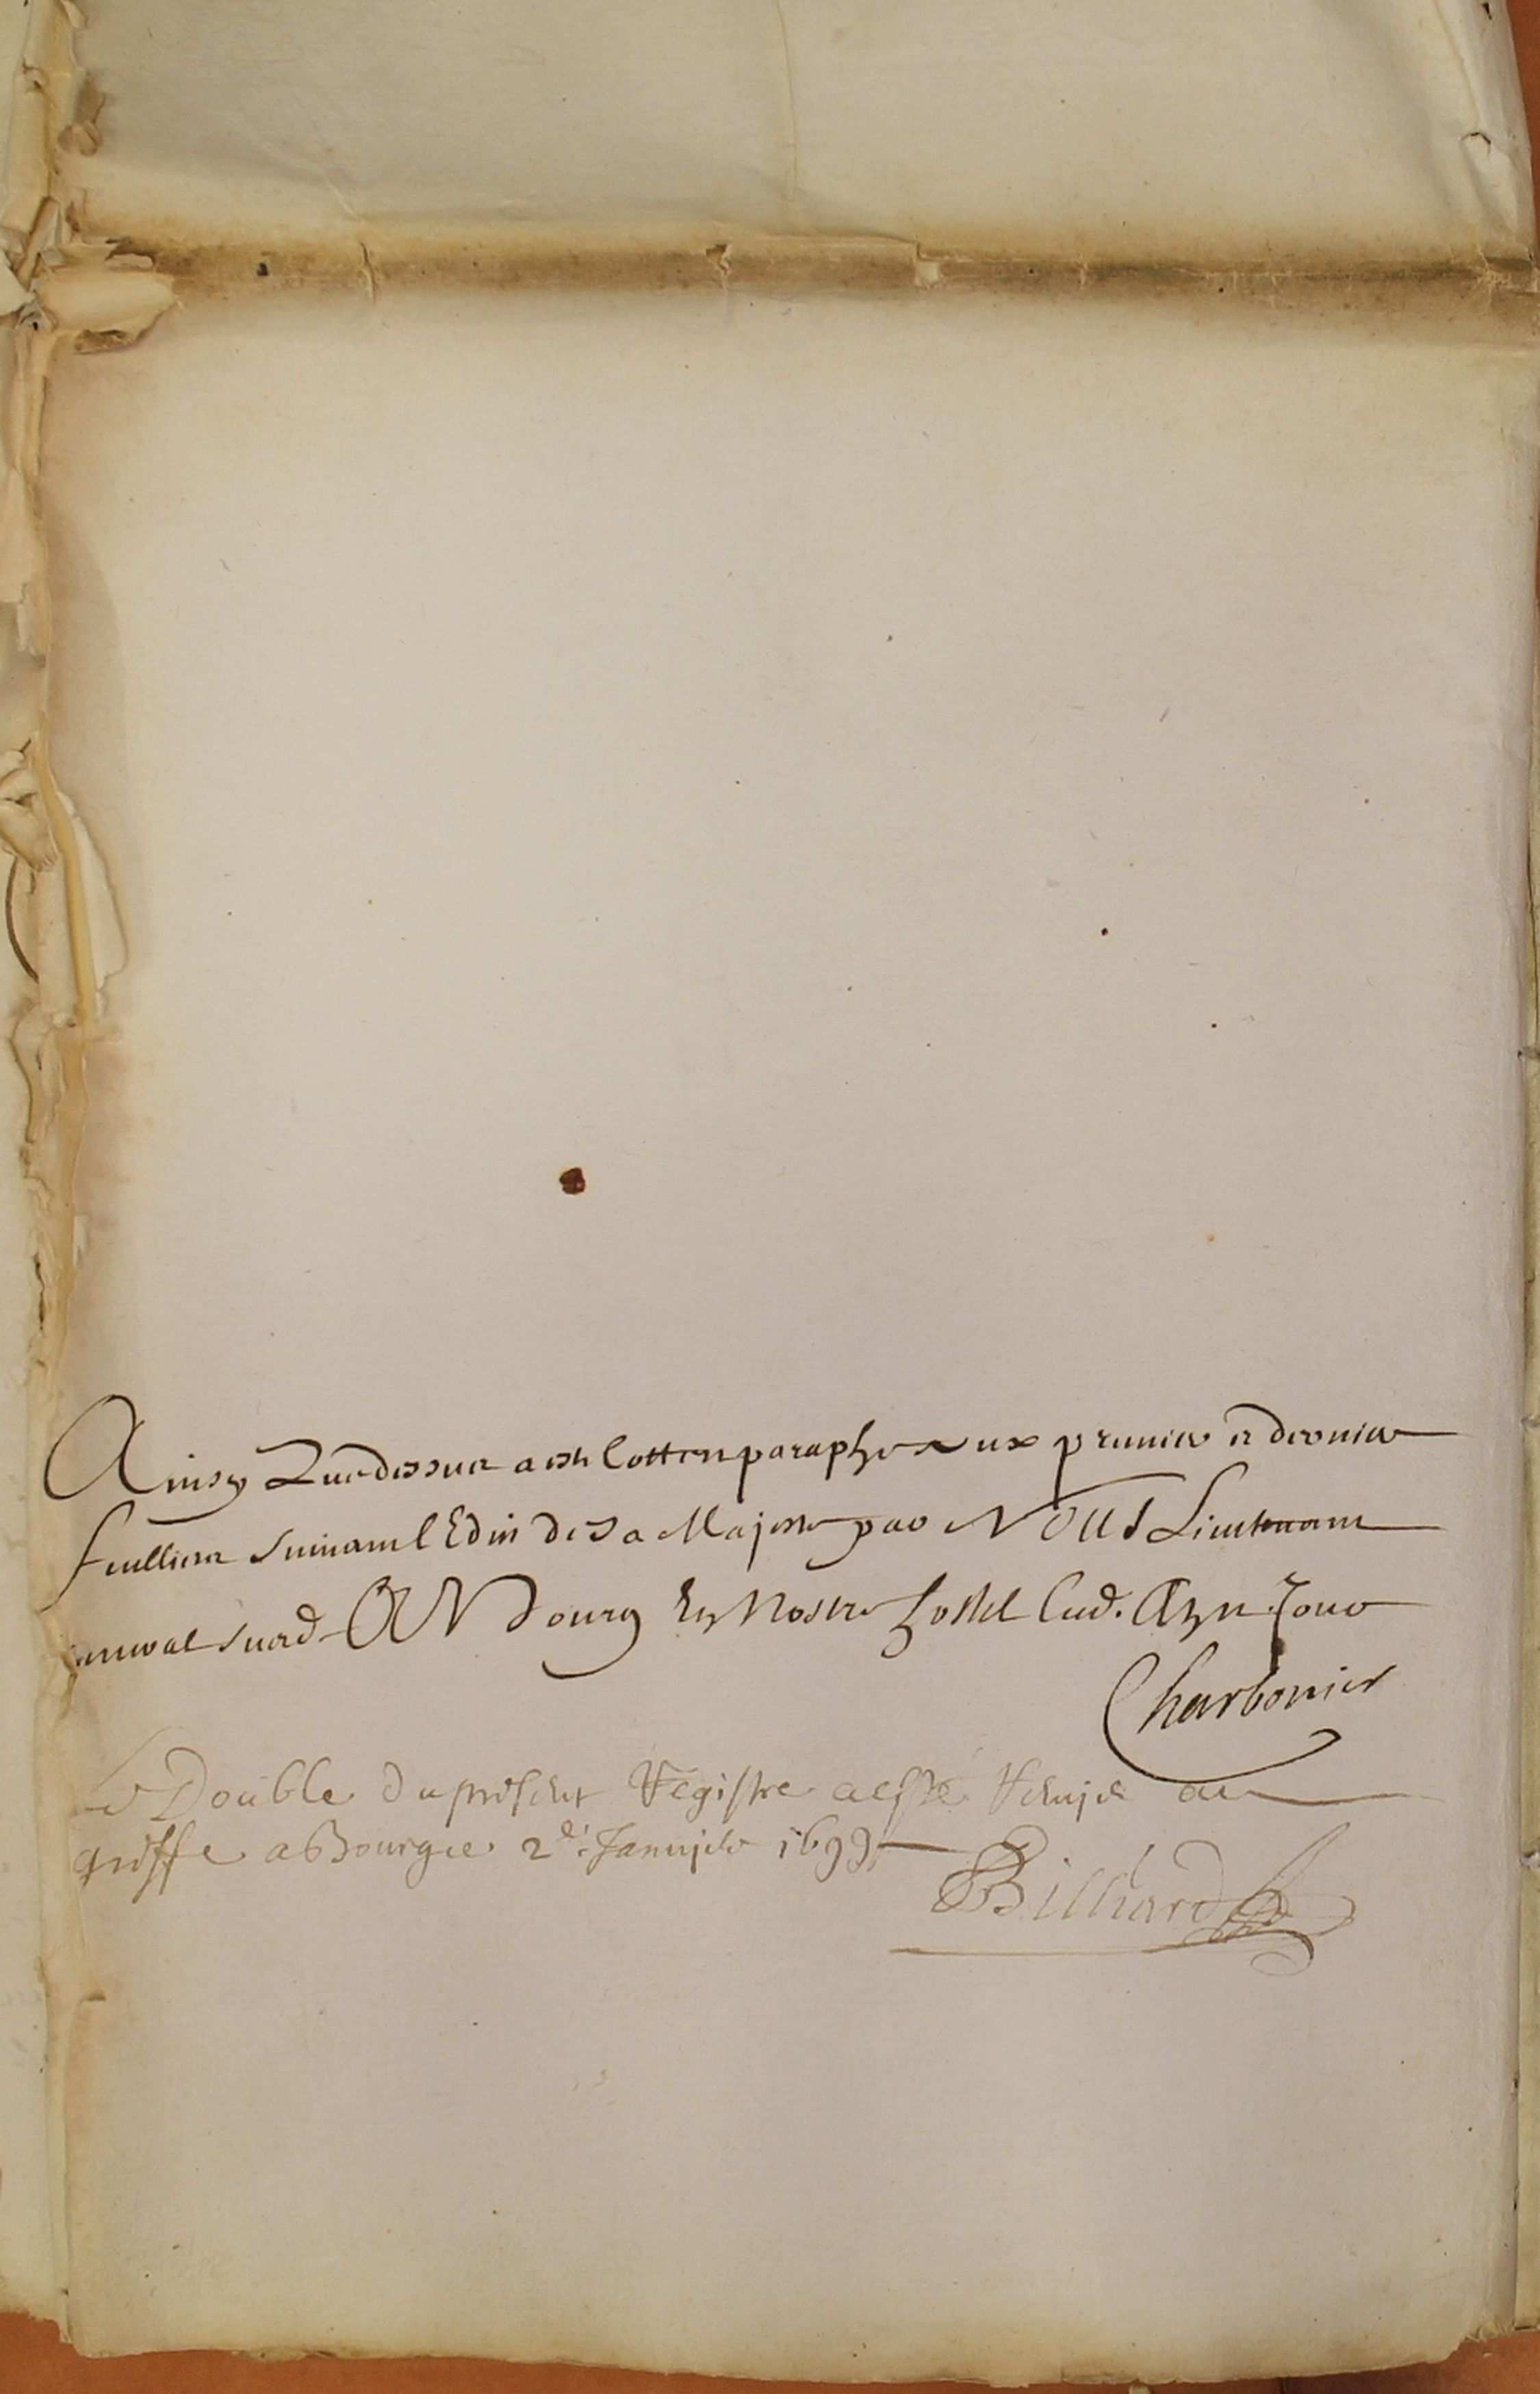 Ainsy que dessus a esté cotté et paraphé aux premier et dernier
feuillier suivant l Edit de Sa Majesté par NOUS Lieutenant
general susd. A Bourg En Nostre hostel Lesd. An et Jour
Charbonier
Le Double du present Registre a esté Remjs au
greffe a Bourg le 2e Janvjer 1699
Billiard